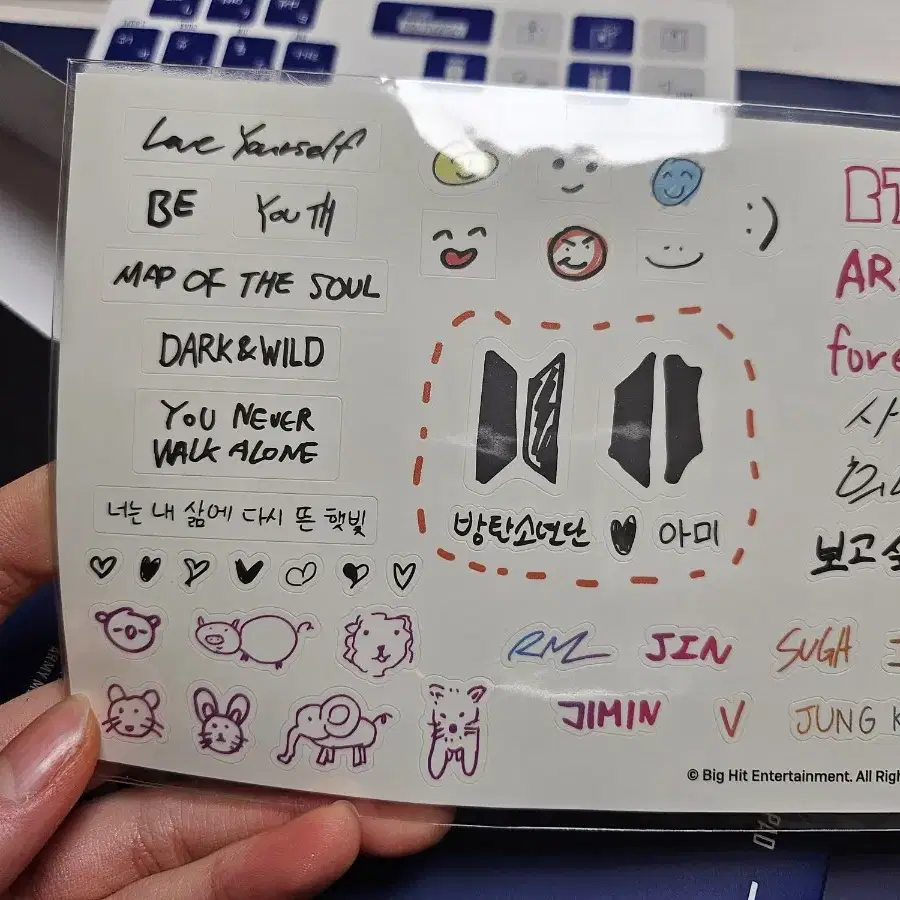 Love Yourself
BE
YOUTH
MAP OF THE SOUL
DARK&WILD
YOU NEVER
WALK ALONE
너는 내 삶에 다시 뜬 햇빛
:)
방탄소년단 ♥ 아미
RM
JIN
SUGA
JIMIN
V
JUNG K
© Big Hit Entertainment. All Righ
BT
AR
fore
사
보고